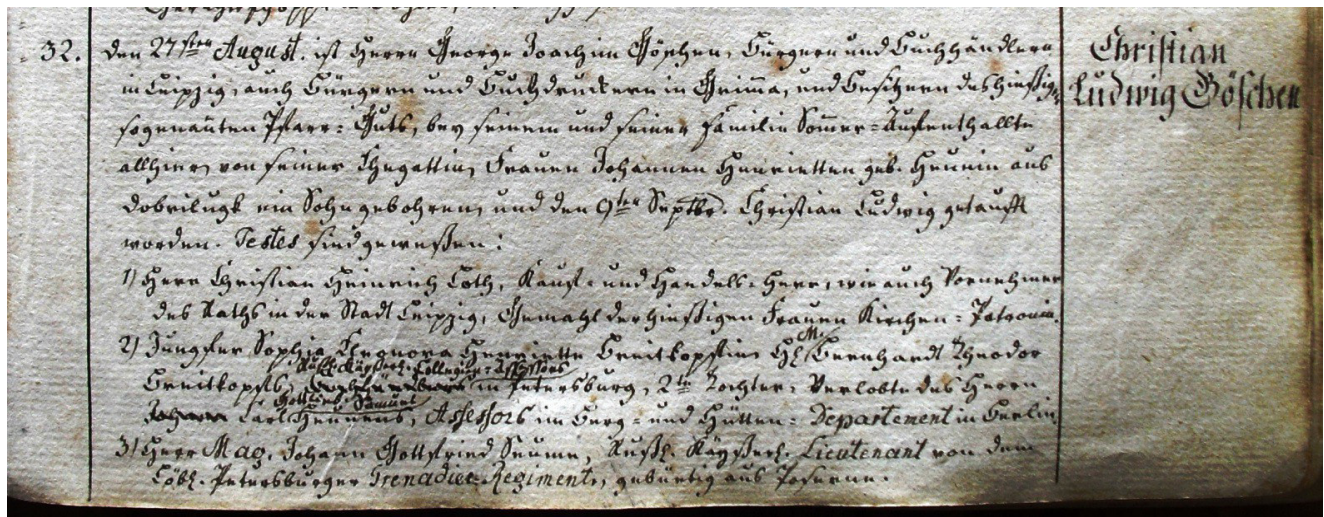 32. den 27sten August. ist Herrn George Joachim Göschen, Bürgern und Buchhändlern
in Leipzig, auch Bürgern und Buchdruckern in Grim̄a, und Besitzern des hiesigen
sogenan̄ten Pfarr-Guts, bey seinem und seiner Familie Som̄er-Auffenthallte
allhier, von seiner Ehegattin, Frauen Johannen Henrietten geb. Heunin aus
Dobrilugk ein Sohn gebohren, und den 9ten Septbr. Christian Ludwig getaufft
worden. Testes sind gewesen:
1) Herr Christian Heinrich Loth, Kauf- und Handels-Herr, wie auch Vornehmer
des Raths in der Stadt Leipzig, Gemahl der hiesigen Frauen Kirchen-Patronin.
2) Jungfer Sophia Eleonora Henriette Breitkopfin H. M. Bernhardt Theodor
Russ. Kayserl. Collegien-Assessors
Breitkopfs, in Petersburg, 2te Tochter, Verlobte des Herrn
Gottlieb Samuel
Johann Carl Hennens, Assessors im Berg- und Hütten-Departement in Berlin.
3) Herr Mag. Johann Gottfried Seume, Russ. Kayserl. Lieutenant von dem
Löbl. Petersburger Grenadier-Regiment, gebürtig aus Poserne.
Christian
Ludwig Göschen